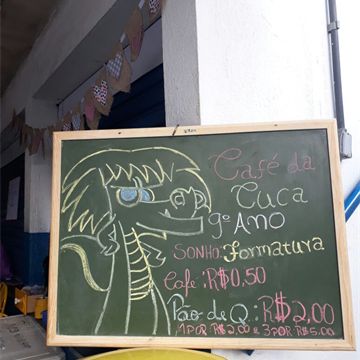 Café da
Cuca
9º Ano
SONHO: Formatura
Café: R$0,50
Pão de Q.: R$2,00
1 POR R$2,00 e 3 POR R$5,00